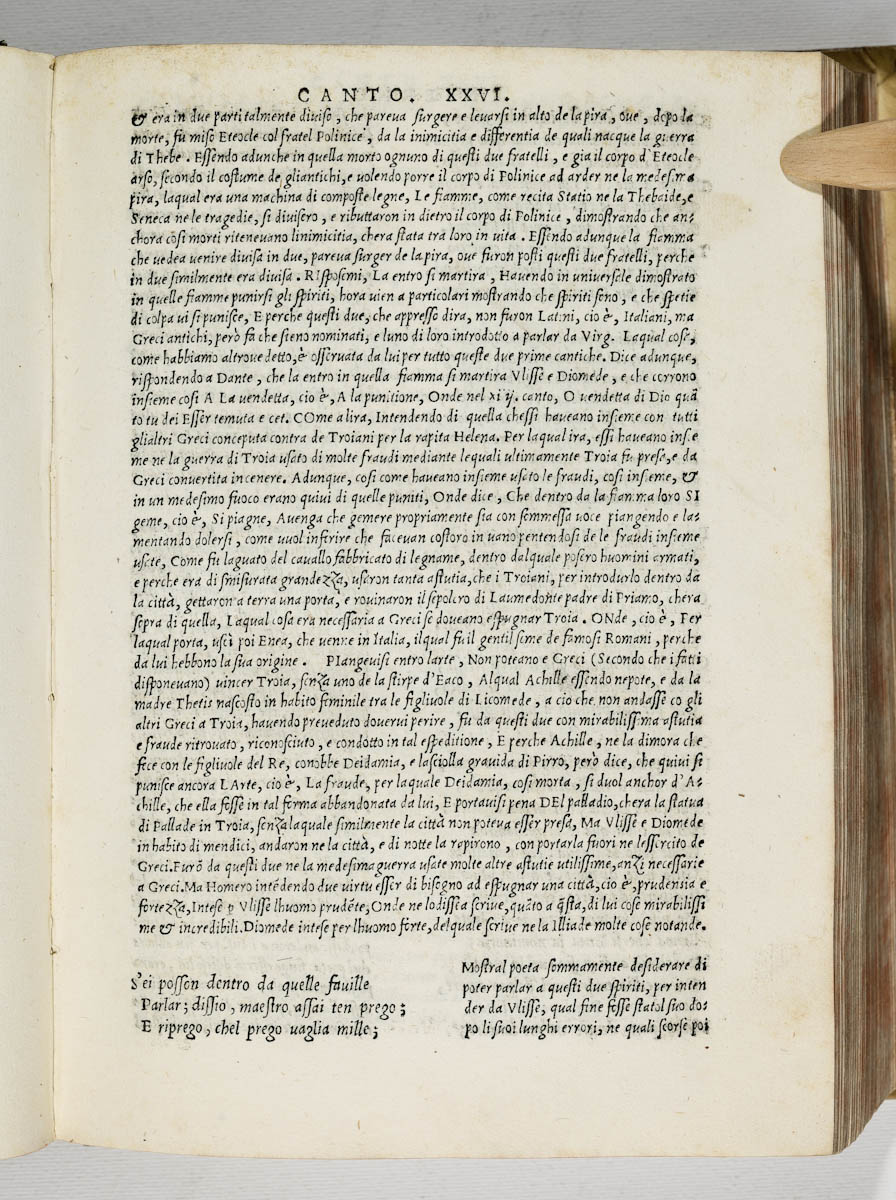 CANTO. XXVI.
& era in due parti talmente diviso, che pareva surgere e levarsi in alto de la pira, oue, dopo la
morte, fu miso Eteocle col fratel Polinice, da la inimicitia e differentia de quali nacque la guerra
di Thebe. Essendo adunche in quella morto ognuno di questi due fratelli, e gia il corpo d'Eteocle
arso, secondo il costume de gliantichi, e uolendo porre il corpo di Polinice ad arder ne la medesima
pira, laqual era una machina di composte legne, Le fiamme, come recita Statio ne la Thebaide, e
Seneca ne le tragedie, si divisero, e ributtaron in dietro il corpo di Polinice, dimostrando che an-
chora cosi morti ritenevano linimicitia, chera stata tra loro in vita. Essendo adunque la fiamma
che vedea venire divisa in due, pareva surger de la pira, oue furon posti questi due fratelli, perche
in due similmente era divisa. RIsposemi, La entro si martira, Havendo in universale dimostrato
in quelle fiamme punirsi gli spiriti, hora vien a particolari mostrando che spiriti sono, e che spetie
di colpa vi si punisce, E perche questi due, che appresso dira, non furon Latini, cio è, Italiani, ma
Greci antichi, però fa che sieno nominati, e luno di loro introdotto a parlar da Virg. Laqual cosa,
come habbiamo altroue detto, è osseruata da lui per tutto queste due prime cantiche. Dice adunque,
rispondendo a Dante, che la entro in quella fiamma si martira Vlisse e Diomede, e che corrono
insieme cosi A La vendetta, cio è, A la punitione, Onde nel xiiij. canto, O vendetta di Dio quã
to tu dei Esser temuta e cet. COme a lira, Intendendo di quella chessi haveano insieme con tutti
glialtri Greci conceputa contra de Troiani per la rapita Helena. Per laqual ira, essi haveano insie
me ne la guerra di Troia usato di molte fraudi mediante lequali ultimamente Troia fu presa, e da
Greci convertita in cenere. Adunque, cosi come haveano insieme usato le fraudi, cosi insieme, &
in un medesimo fuoco erano quivi di quelle puniti, Onde dice, Che dentro da la fiamma loro SI
geme, cio è, Si piagne, Avenga che gemere propriamente sia con sommessa uoce piangendo e la-
mentando dolersi, come vuol inferire che faceuan costoro in uano pentendosi de le fraudi insieme
usate, Come fu laguato del cavallo fabbricato di legname, dentro dalquale posero huomini armati,
e perche era di smisurata grandezza, useron tanta astutia, che i Troiani, per introdurlo dentro da
la città, gettaron a terra una porta, e rovinaron il sepolcro di Laumedonte padre di Priamo, chera
sopra di quella, Laqual cosa era necessaria a Greci se doveano espugnar Troia. ONde, cio è, Per
laqual porta, uscì poi Enea, che venne in Italia, ilqual fu il gentil seme de famosi Romani, perche
da lui hebbono la sua origine. PIangevisi entro larte, Non poteano e Greci (Secondo che i fatti
disponevano) vincer Troia, senza uno de la stirpe d'Eaco, Alqual Achille essendo nepote, e da la
madre Thetis nascosto in habito feminile tra le figliuole di Licomede, a cio che non andasse co gli
altri Greci a Troia, havendo preveduto doverui perire, fu da questi due con mirabilissima astutia
e fraude ritrovato, riconosciuto, e condotto in tal espeditione, E perche Achille, ne la dimora che
fece con le figliuole del Re, conobbe Deidamia, e lasciolla gravida di Pirro, però dice, che quivi si
punisce ancora LArte, cio è, La fraude, per laquale Deidamia, cosi morta, si duol anchor d'A-
chille, che ella fesse in tal forma abbandonata da lui, E portavisi pena DEl palladio, chera la statua
di Pallade in Troia, senza laquale similmente la città non poteva esser presa, Ma Vlisse e Diomede
in habito di mendici, andaron ne la città, e di notte la rapirono, con portarla fuori ne lessercito de
Greci. Furõ da questi due ne la medesima guerra usate molte altre astutie utilissime, anzi necessarie
a Greci. Ma Homero intẽdendo due virtu esser di bisogno ad espugnar una città, cio è, prudensia e
fortezza, Intese ꝑ Vlisse lhuomo prudẽte, Onde ne lodissea scrive, quãto a q̃sta, di lui cose mirabilissi
me & incredibili. Diomede intese per lhuomo forte, delquale scrive ne la Illiade molte cose notande.
S'ei posson dentro da quelle faville
Parlar; dissio, maestro assai ten prego;
E riprego, chel prego vaglia mille;
Mostral poeta sommamente desiderare di
poter parlar a questi due spiriti, per inten
der da Vlisse, qual fine fesse statol suo do-
po li suoi lunghi errori, ne quali scorse poi